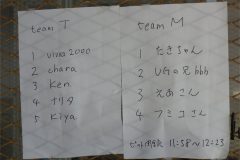 team T
1 viva2000
2 chara
3 Ken
4 ナリタ
5 Kiya
team M
1 たきちゃん
2 UGの兄bbb
3 えみさん
4 フミコさん
11:58〜12:23